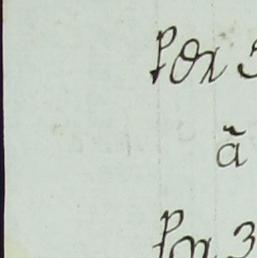 Por 3
ã
Por 3